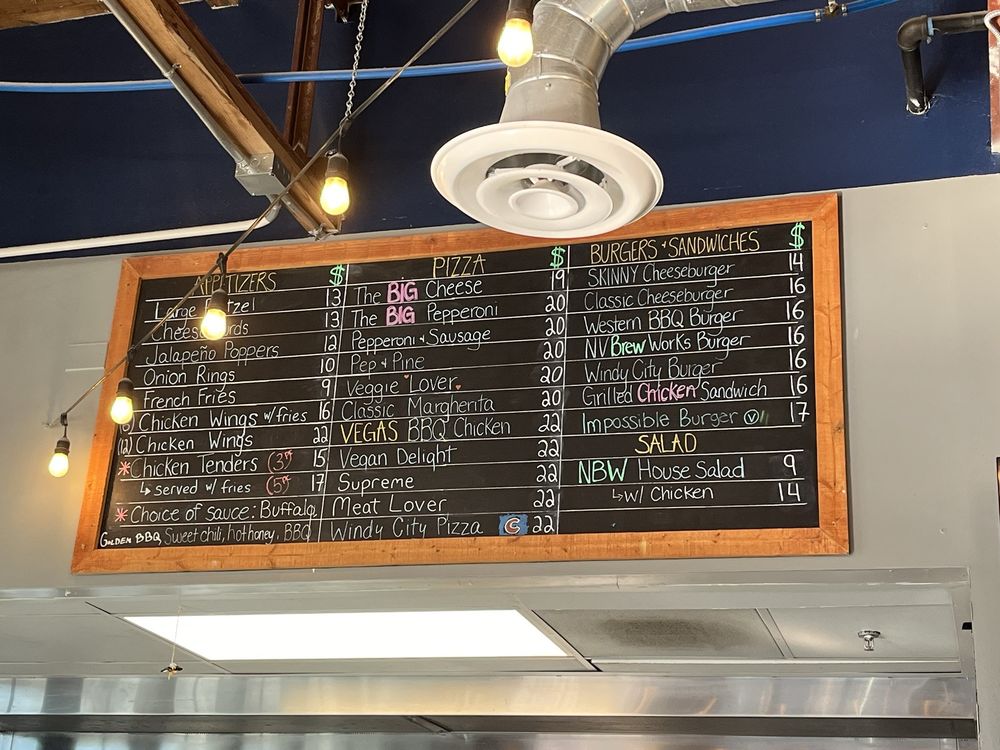 APPETIZERS $
Large Pretzel 13
Cheese Curds 13
Jalapeño Poppers 12
Onion Rings 10
French Fries 9
Chicken Wings w/fries 16
(12) Chicken Wings 22
*Chicken Tenders (3) 15
↳ served w/ fries (5) 17
* Choice of sauce: Buffalo,
GOLDEN BBQ, Sweet chili, hot honey, BBQ
PIZZA $
The BIG Cheese 19
The BIG Pepperoni 20
Pepperoni & Sausage 20
Pep & Pine 20
Veggie Lover 20
Classic Margherita 20
VEGAS BBQ Chicken 22
Vegan Delight 22
Supreme 22
Meat Lover 22
Windy City Pizza C 22
BURGERS & SANDWICHES $
SKINNY Cheeseburger 14
Classic Cheeseburger 16
Western BBQ Burger 16
NV Brew Works Burger 16
Windy City Burger 16
Grilled Chicken Sandwich 16
Impossible Burger Ⓥ 17
SALAD
NBW House Salad 9
↳ w/ Chicken 14